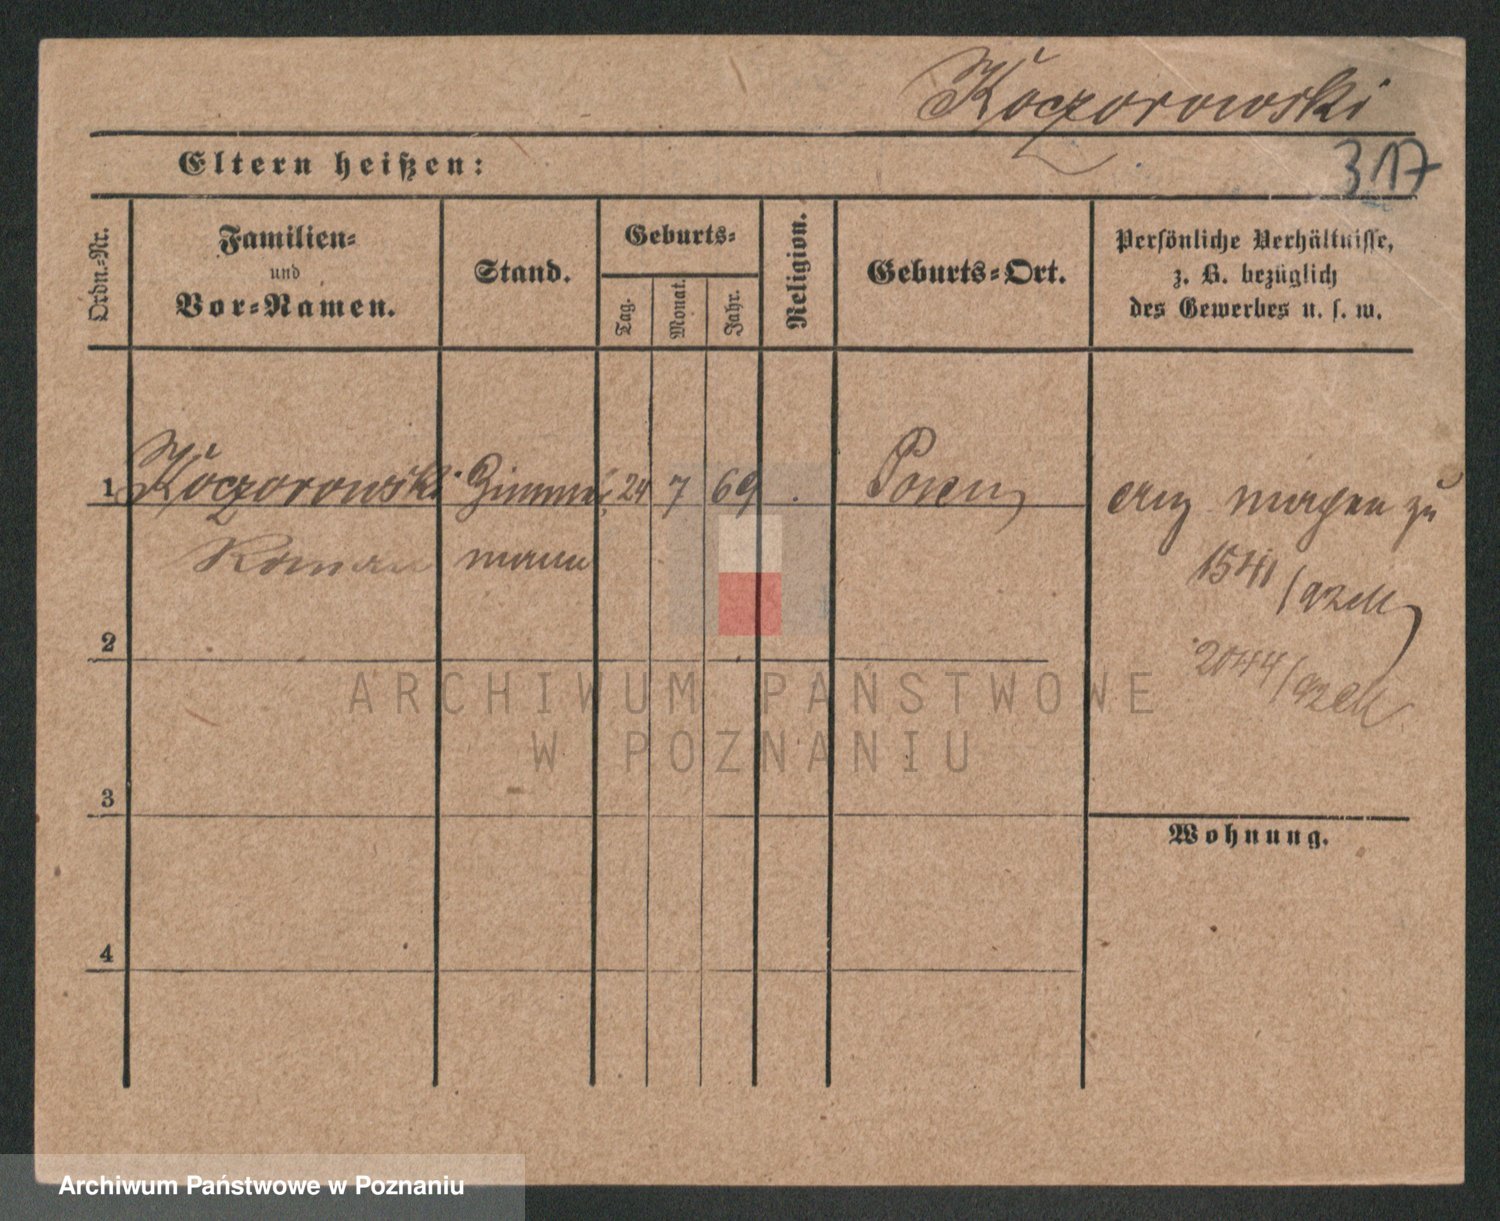 Koczorowski
317
Eltern heißen:
Ordn.-Nr.
Familien-
und
Vor-Namen.
Stand.
Geburts-
Tag.
Monat.
Jahr.
Religion.
Geburts-Ort.
Persönliche Verhältnisse,
z. B. bezüglich
des Gewerbes u. s. w.
1 Koczorowski Zimmer 24 7 69 Posen zu
Roman mann
1541
2
2044
ARCHIWUM PAŃSTWOWE
W POZNANIU
3
Wohnung.
4
Archiwum Państwowe w Poznaniu